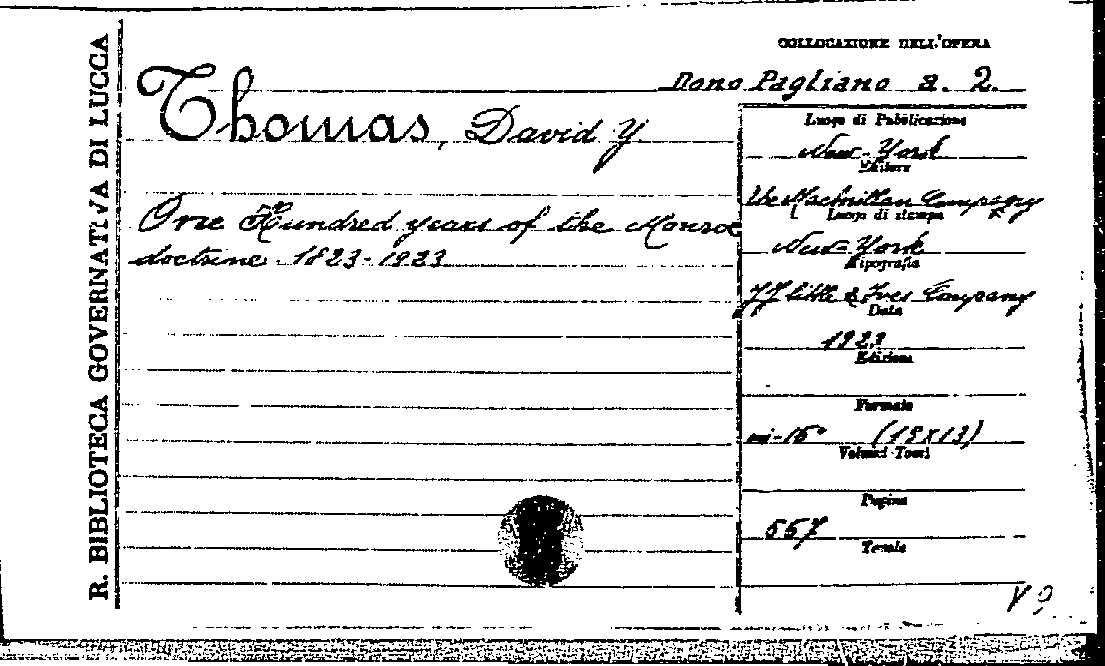 R. BIBLIOTECA GOVERNATIVA DI LUCCA
COLLOCAZIONE DELL'OPERA
Dono Pagliano a. 2.
Thomas, David Y
One Hundred years of the Monroe
doctrine 1823-1923
Luogo di Pubblicazione
New-York
Editore
the Macmillan Company
Luogo di stampa
New-York
Tipografia
J J little & Ives Company
Data
1923
Edizione
Formato
in-16° (19x13)
Volumi Tomi
Pagine
567